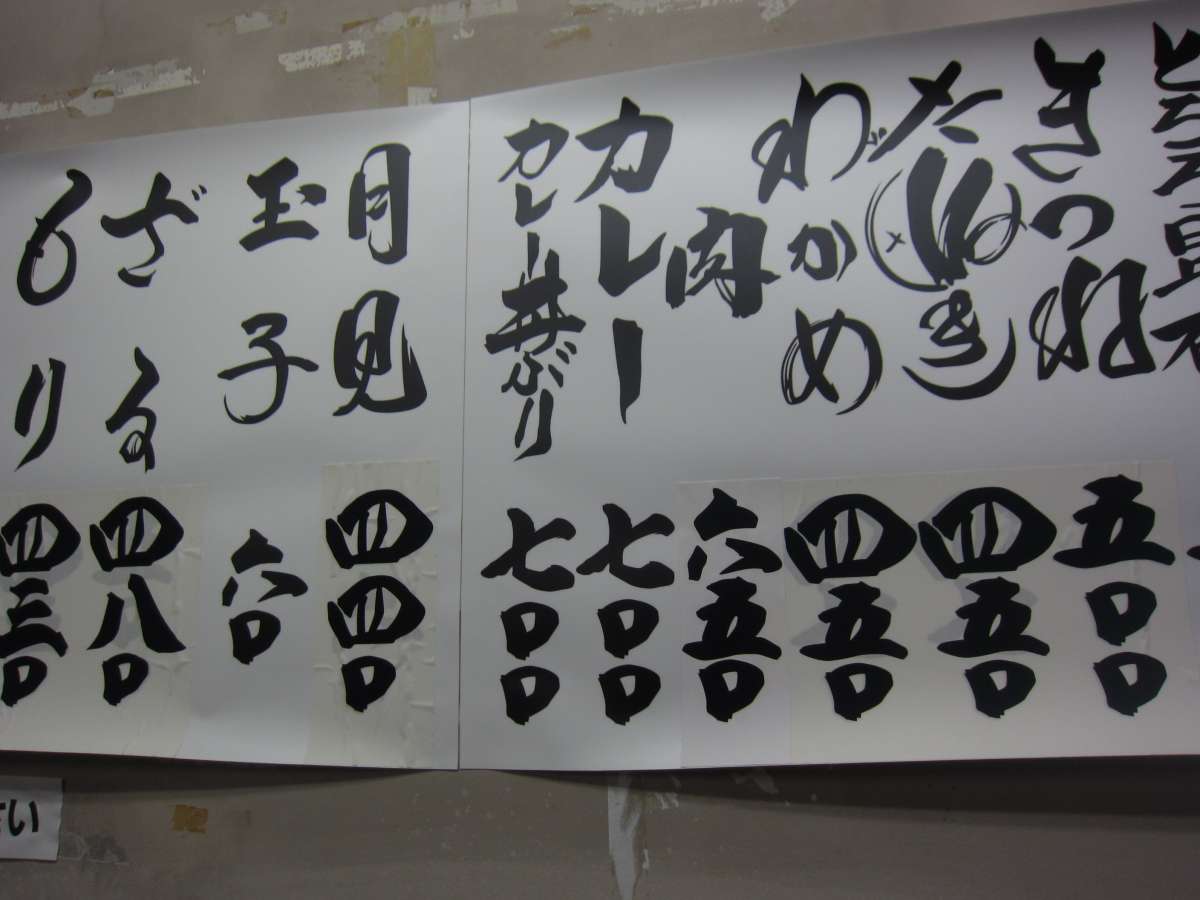 きつね 五〇〇
たぬき 四五〇
わかめ 四五〇
肉 六五〇
カレー 七〇〇
カレー丼ぶり 七〇〇
月見 四四〇
玉子 六〇
ざる 四八〇
もり 四三〇
さい